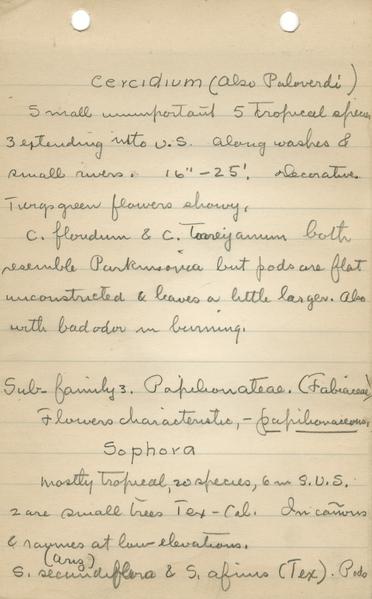 Cercidium (Also Paloverdi)
Small unimportant 5 tropical species
3 extending into U.S. along washes &
small rivers. 16" - 25'. Decorative.
Twigs green flowers showy.
C. floridum & C. Torreyanum both
resemble Parkinsonia but pods are flat
unconstricted & leaves a little larger. Also
with bad odor in burning.
Sub-family 3. Papilionateae. (Fabiaceae)
Flowers characteristic, - papilionaceous.
Sophora
Mostly tropical, 20 species, 6 in S.U.S.
2 are small trees Tex - Cal. In cañons
& ravines at low elevations.
(Ariz)
S. secundiflora & S. afinis (Tex). Pods